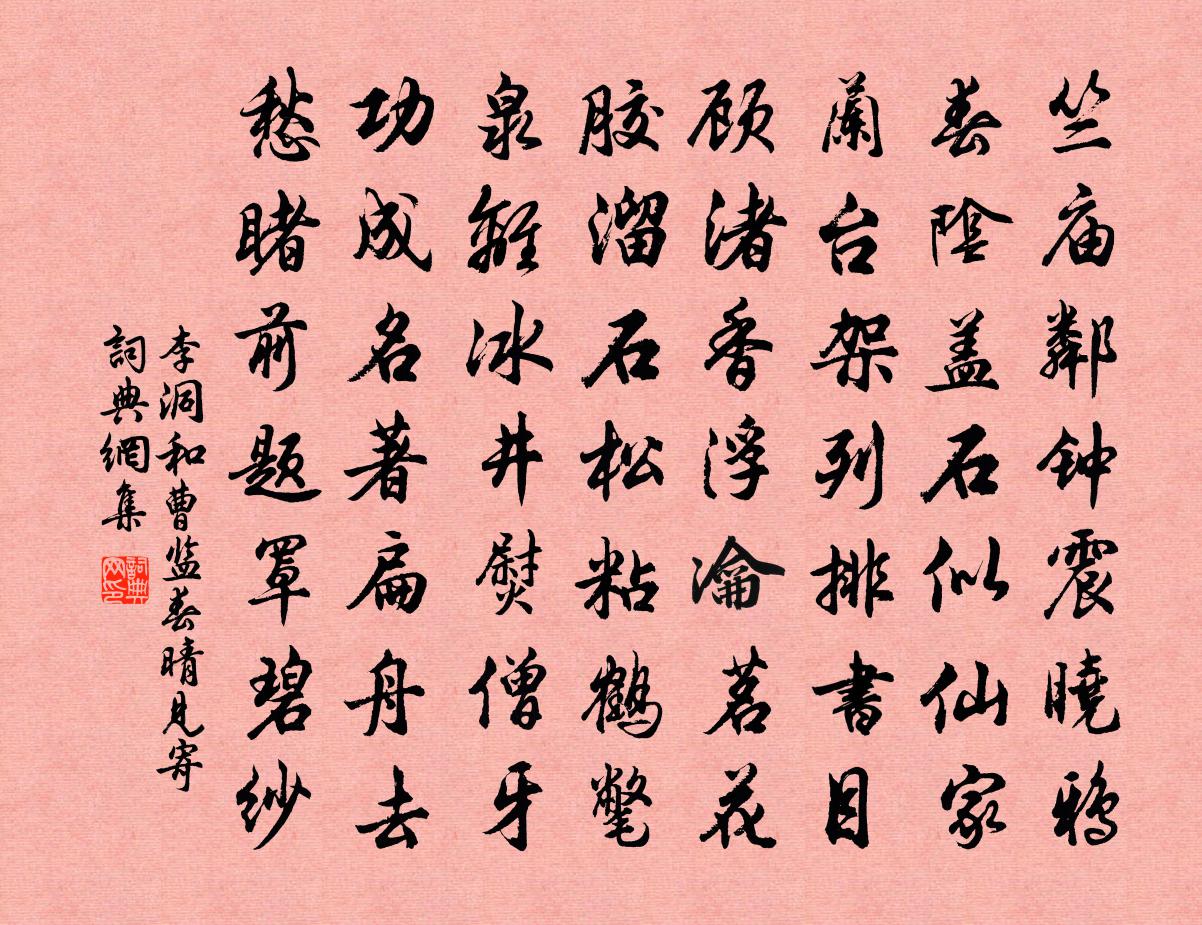 竺庙鄰钟震曉鴉
春陰盖石似仙家
蘭台架列排書目
顾渚香浮瀹茗花
胶溜石松粘鶴氅
泉離冰井熨僧牙
功成名著扁舟去
愁睹前题罩碧纱
李洞和曹监春晴见寄
詞典網集
詞典网印